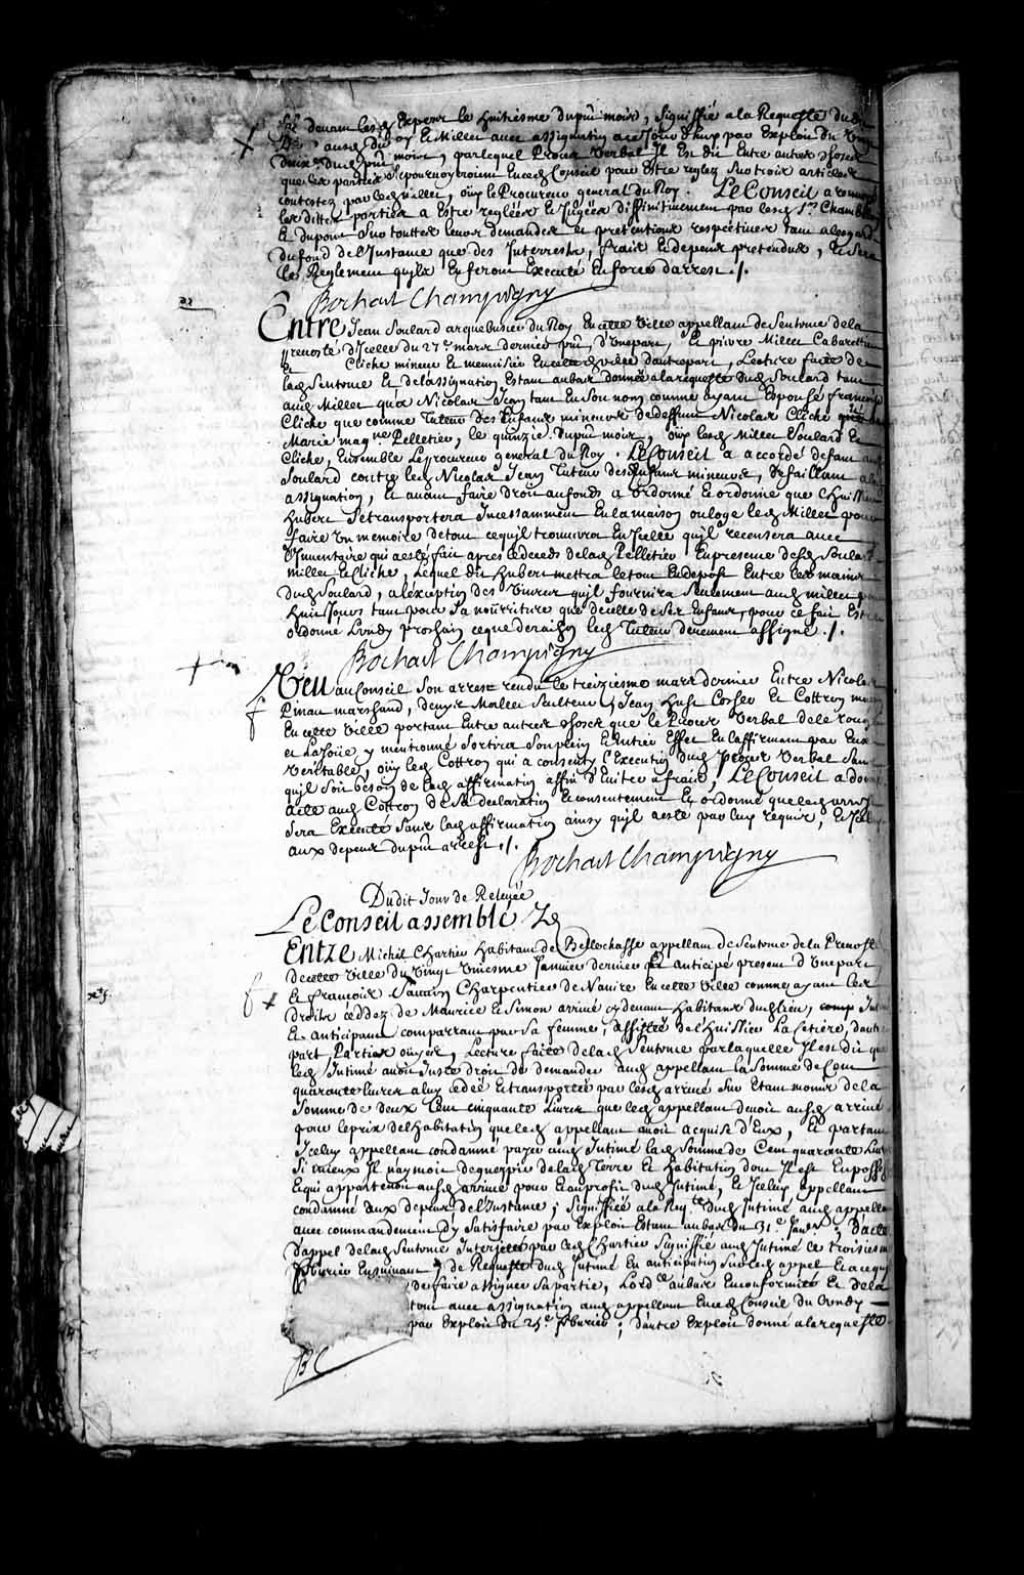 devant lesd Expertz le huitiesme du pnt mois, signiffié a la Requeste dud
ausd du Roy et Millet avec assignation a ce Jour d'huy par Exploit du
dud pnt mois, par lequel Proces Verbal Il Est dit Entre autres choses
que les parties se pourvoyroient Enced Conseil pour Estre reglez sur trois articles
contestez par led Millet, oüy le Procureur general du Roy. Le Conseil a renvoyé
lesdittes parties a Estre reglées et Jugées diffinitivement par lesd Srs Chamb
et dupont sur touttes leurs demandes et pretentions respectives tant a l'esgard
du fond de l'Instance que des Interrests, fraix et depens pretendus, et sera
le Reglement qu'ilz En feront Executé En force d'arrest ./.
Bochart Champigny
Entre Jean Soulard arquebusier du Roy En cette Ville appellant de Sentence de la
prevosté d'Icelle du 27e mars dernier pnt, d'Vnepart, Et pierre Millet Cabarettier
et Cliche mineur et menuisier En cetted ville d'autre part, Lecture faite de
lad Sentence Et de l'assignation Estant au bas donnée a la requeste dud Soulard tant
aud Millet qu'a Nicolas Jean tant En son nom comme ayant Espousé françoise
Cliche que comme Tuteur des Enfans mineurs de deffunt Nicolas Cliche et de
Marie magne Pelletier, le quinzie du pnt mois, oüy lesd Millet Soulard Et
Cliche, Ensemble Le procureur general du Roy. Le Conseil a accordé defaut aud
Soulard contre led Nicolas Jean Tuteur desd Enfans mineurs, defaillant a lad
assignation, Et avant faire droit au fonds a ordonné Et ordonne que l'huissier
hubert se transportera Incessamment En la maison ou loge led Millet pour
faire Vn memoire de tout ce qu'il trouvera En Icelle qu'il recensera avec
l'Inventaire qui a esté fait apres le deceds de lad Pelletier En presence desd Soulard
millet Et Cliche, Lequel dit hubert mettra le tout En depost Entre les mains
dud Soulard, a l'exception des Vivres qu'il fournira seulement aud millet pour
huit Jours tant pour sa nourriture que de celle de ses Enfans, pour ce fait Estre
ordonné Lundy prochain ce que de raison led Tuteur deuement assigné ./.
Bochart Champigny
Veu au Conseil son arrest rendu le treiziesme mars dernier Entre Nicolas
Pinau marchand, denys Mallet sculteur, Jean hust Cosset Et Cottron
En cette Ville portant Entre autres choses que le Proces Verbal de le rouge
et LaJoüe y mentionné sortira son plein Et Entier Effet En l'affirmant par Eux
Veritable, oüy led Cottron qui a consenty l'Execution dud Proces Verbal sans
qu'il soit besoin de lad affirmation affin d'Eviter a fraix, Le Conseil a donné
acte aud Cottron de sa declaration Et consentement Et ordonné que led arrest
sera Executé sans lad affirmation ainsy qu'il a esté par luy requis, Et Iceluy
aux depens du pnt arrest ./.
Bochart Champigny
Dudit Jour de Relevée
Le Conseil assemblé
Entre Michel Chartier habitant de Bellechasse appellant de Sentence de la Prevosté
de cette Ville du Vingt Vniesme Janvier dernier Et anticipé present d'Vnepart,
Et françois Charpentier de Navire En cette Ville comme ayant les
droits ceddez de Maurice Et Simon arrivé cy devant habitans dud lieu, comp Intimé
Et anticipant comparant par sa femme, assistée de l'huissier La Cetiere, d'autre
part, Parties oüyes, Lecture faite de lad Sentence par laquelle Il est dit que
led Intimé avoit Juste droit de demander aud appellant la Somme de Cent
quarante livres a luy cedée Et transportée par lesd arrivé sur Et tant moins de la
Somme de deux Cent cinquante Livres que led appellant devoit ausd arrivé
pour le prix de l'habitation que led appellant avoit acquise d'Eux, Et partant
Iceluy appellant condamné payer aud Intimé lad Somme de Cent quarante Livres
Si mieux Il n'aymoit deguerpir de lad Terre Et habitation dont Il est En possession
Et qui appartenoit ausd arrivé pour Et au profit dud Intimé, Et Iceluy appellant
condamné aux depens de l'Instance; Signiffiée a la Reqte dud Intimé aud appellant
avec commandement d'y satisfaire par Exploit Estant au bas du 31e Janvr; d'acte
d'appel de lad Sentence Interjetté par led Chartier Signiffié aud Intimé le troisiesme
febvrier Ensuivant, de Requeste dud Intimé En anticipation sur led appel Et a ce qu'il
de faire assigner sa partie, Lordce au bas En conformité Et de la
tout avec assignation aud appellant En ced Conseil du Vendy
par Exploit du 25e febvrier; d'autre Exploit donné a la requeste
BC